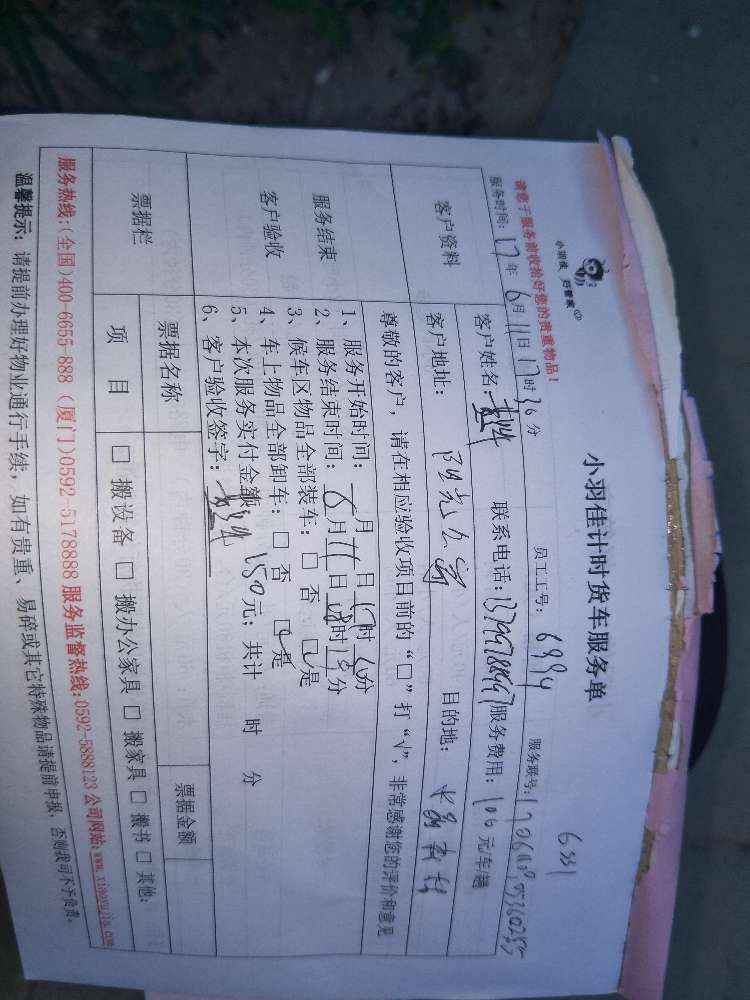 小羽佳 好管家
小羽佳计时货车服务单
6551
请您于服务前收拾好您的贵重物品！
服务时间：17年6月11日17时36分 员工工号：6994 服务联号：
客户资料
客户姓名： 联系电话： 服务费用：100元车趟
客户地址：阳光公寓 目的地：
服务结束
客户验收
尊敬的客户，请在相应验收项目前的“□”打“√”，非常感谢您的评价和意见
1、服务开始时间： 月 日 时 分
2、服务结束时间：6月11日18时15分
3、候车区物品全部装车：□ 否 ☑是
4、车上物品全部卸车：□ 否 ☑是
5、本次服务实付金额150元；共计 时 分
6、客户验收签字：
票据栏
票据名称 票据金额
项 目 □ 搬设备 □ 搬办公家具 □ 搬家具 □ 搬书 □ 其他：
服务热线：(全国)400-6655-888 (厦门)0592-5178888 服务监督热线：0592-5888123 公司网站：www.xiaoyujia.com
温馨提示：请提前办理好物业通行手续，如有贵重、易碎或其它特殊物品请提前申报，否则我司不予负责。